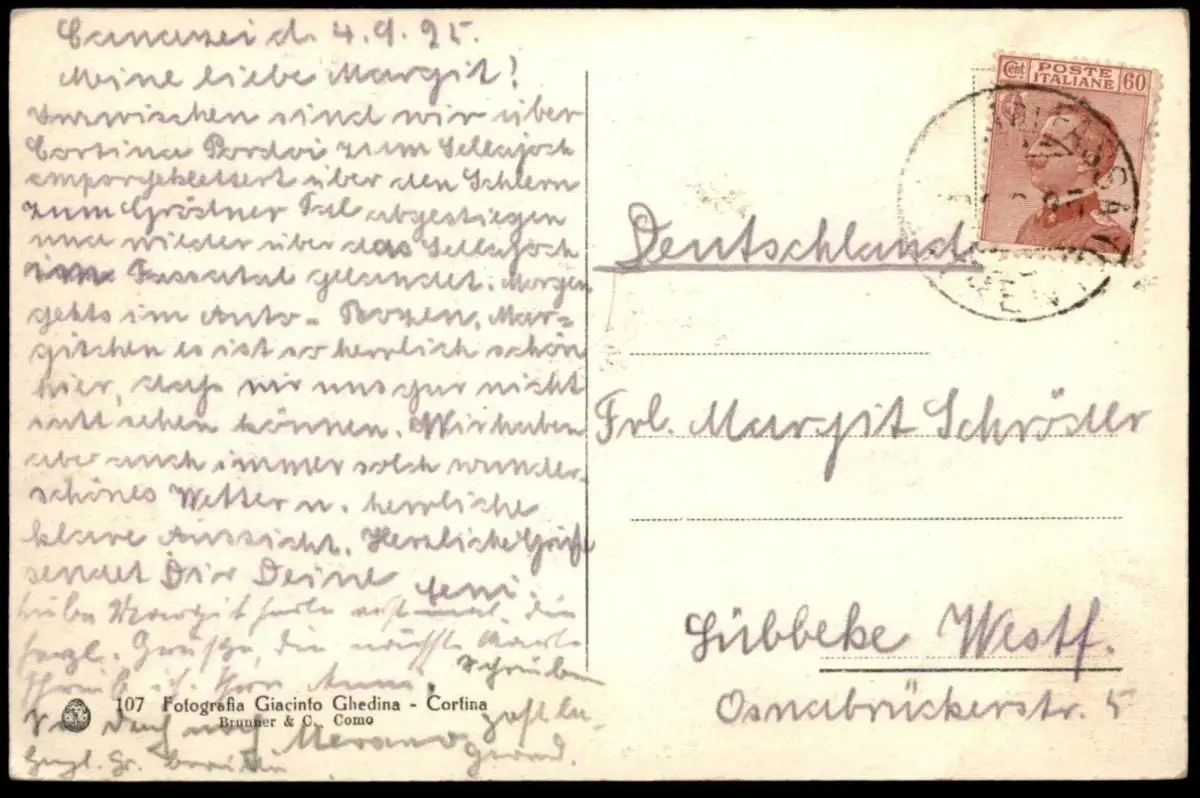 Canazei d. 4.9.25.
Meine liebe Margit!
Inzwischen sind wir über
Cortina Pordoi zum Sellajoch
emporgeklettert über den Schlern
zum Grödner Tal abgestiegen
und wieder über das Sellajoch
im Fassatal gelandet. Morgen
gehts im Auto - Bozen. Mar=
gitchen es ist so herrlich schön
hier, daß wir uns gar nicht
satt sehen können. Wir haben
aber auch immer solch wunder-
schönes Wetter u. herrliche
klare Aussicht. Herzliche Grüße
sendet Dir Deine
Liebe Margit herzl. Grüsse, die nächste Karte
schreib ich.
schreiben
107 Fotografia Giacinto Ghedina - Cortina
Brunner & C. Como
Merano
Cent POSTE ITALIANE 60
Deutschland
Frl. Margit Schrödler
Lübbeke Westf.
Osnabrückerstr. 5